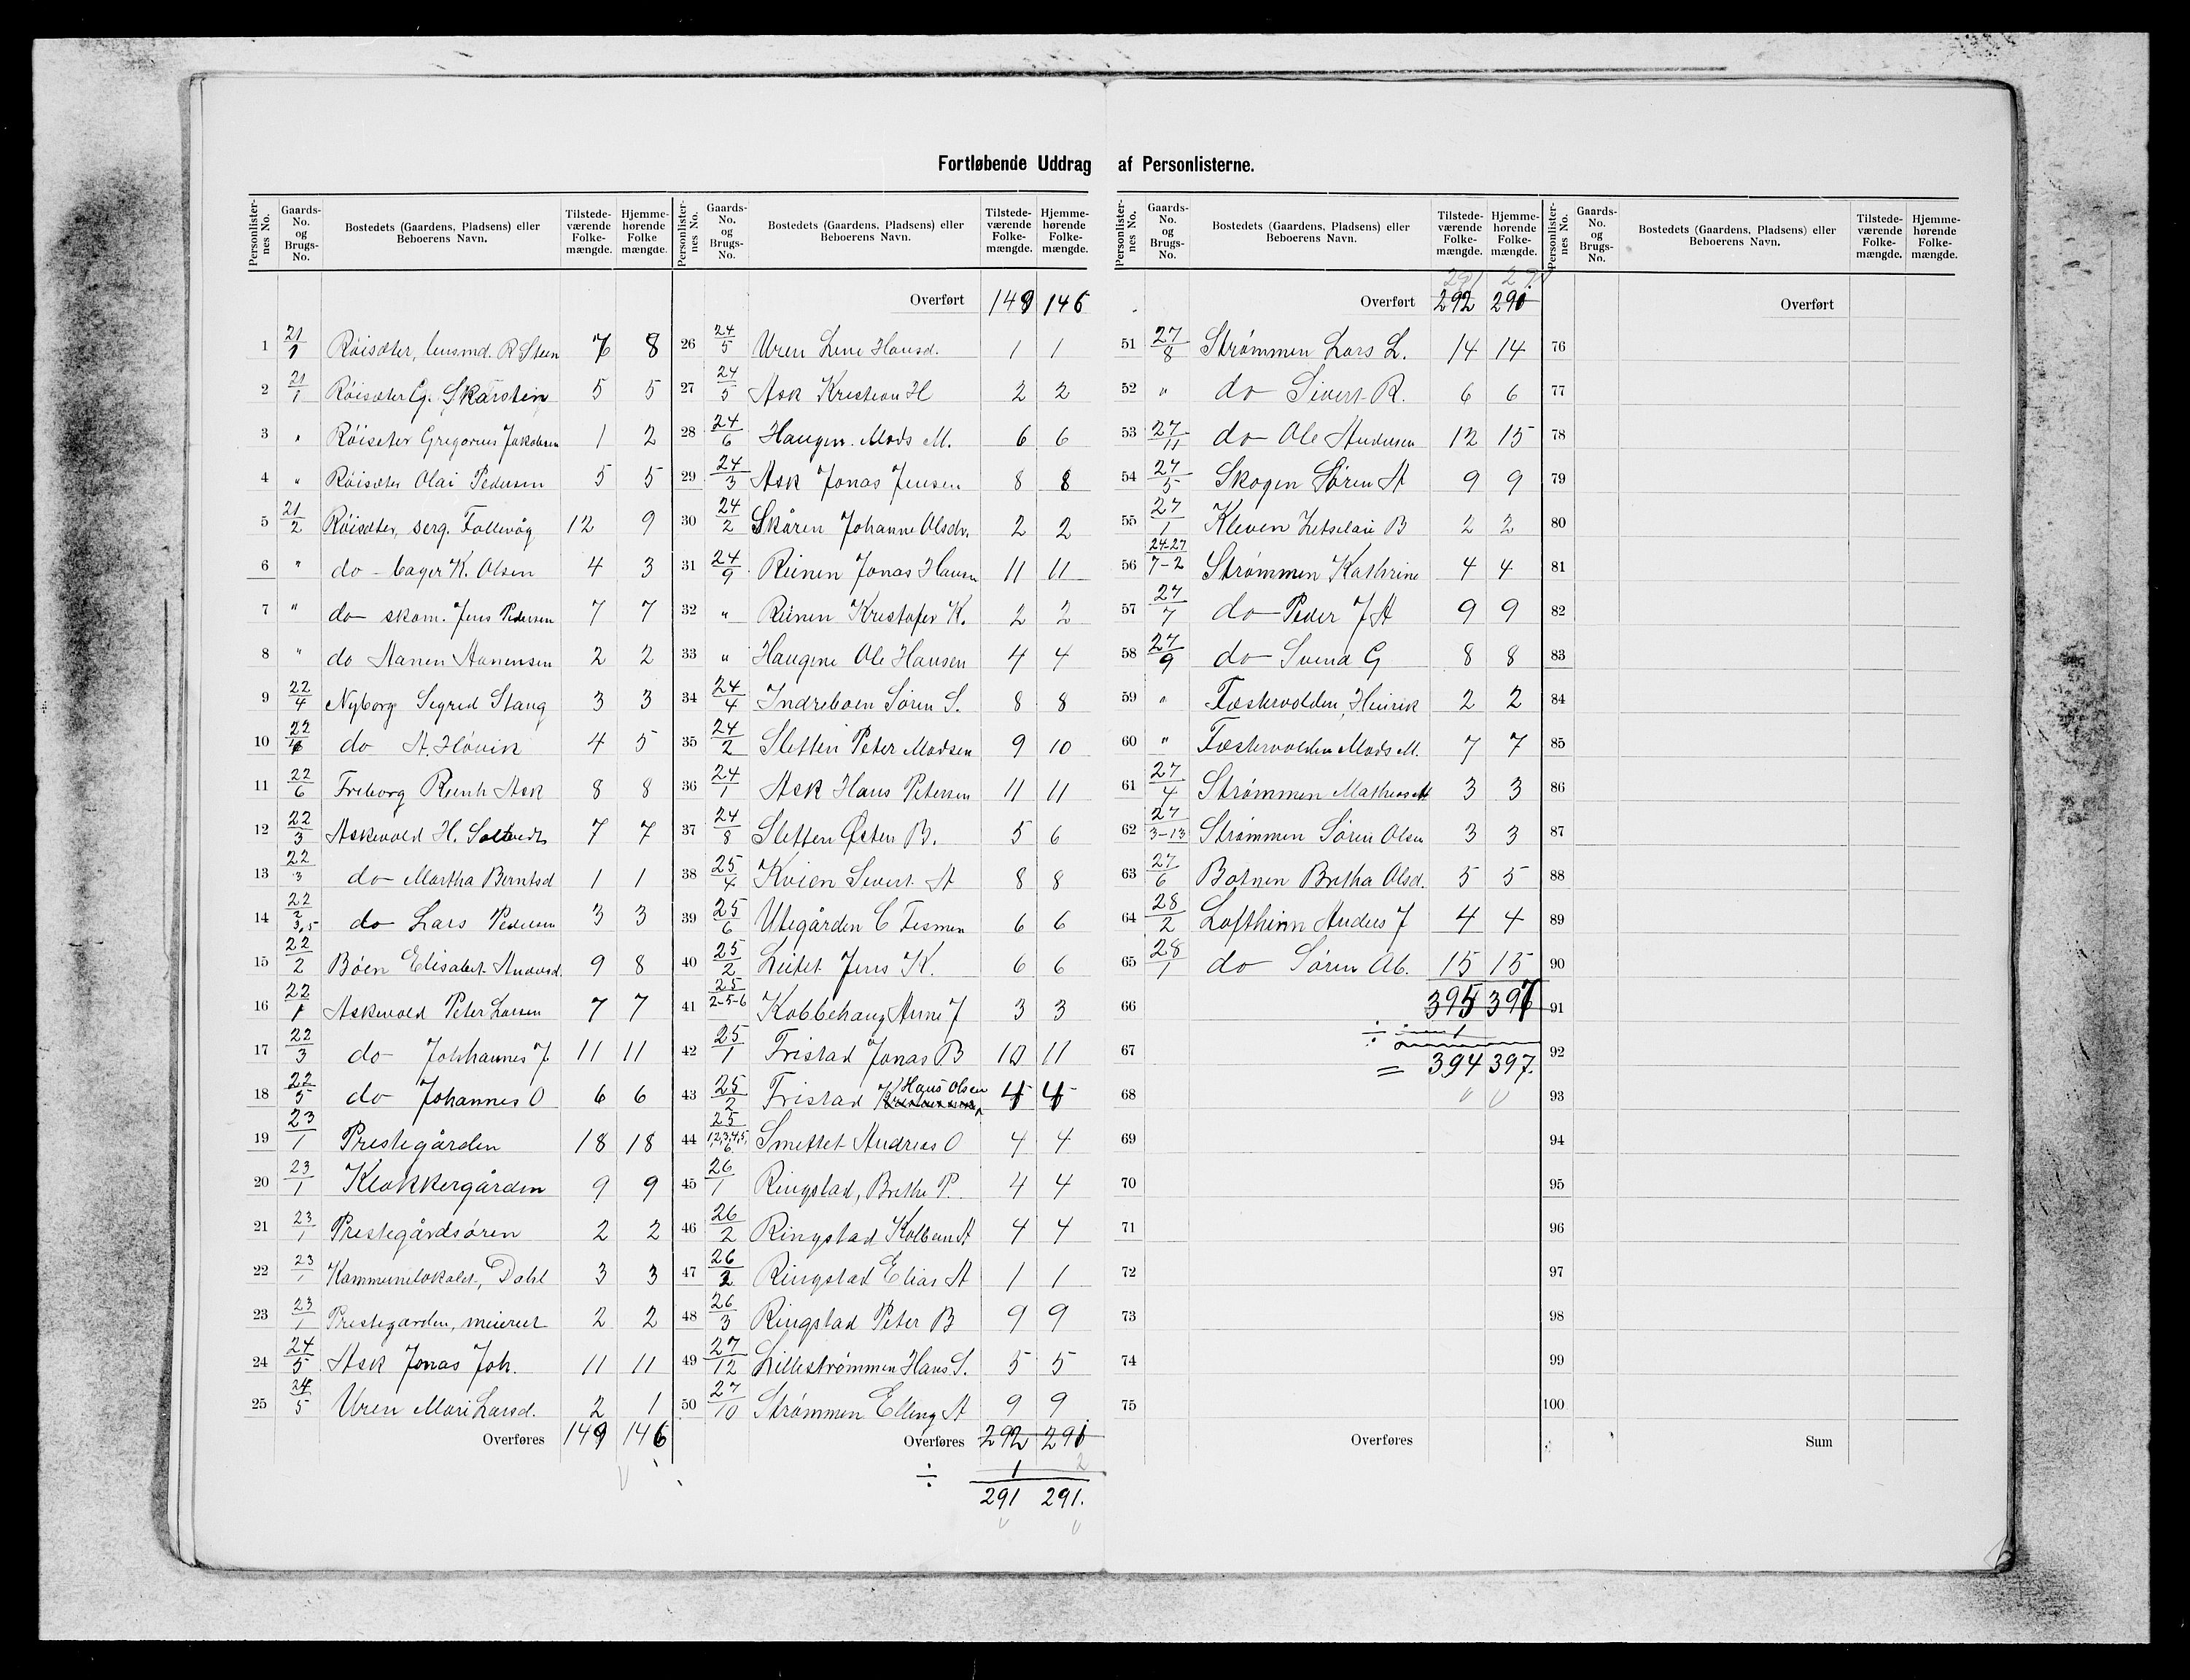 Fortløbende Uddrag af Personlisterne.
Personlisternes No. Gaards-No. og Brugs-No. Bostedets (Gaardens, Pladsens) eller Beboerens Navn. Tilstedeværende Folkemængde. Hjemmehørende Folkemængde.
1 21/1 Röisæter, lensmd. R Steen 7 8
2 21/1 Röisæter G. Skarstein 5 5
3 " Röiseter Gregorius Jakobsen 1 2
4 " Röisæter Olai Pedersen 5 5
5 21/2 Röisæter, serg. Follevåg 12 9
6 " do - bager K. Olsen 4 3
7 " do skom. Jens Pedersen 7 7
8 " do Aanen Aanensen 2 2
9 22/4 Nyborg Sigrid Stang 3 3
10 22/4 do A. Hövik 4 5
11 22/6 Friborg Reinh Ask 8 8
12 22/3 Askevold H. 7 7
13 22/3 do Martha Berntsd 1 1
14 22/2 3,5 do Lars Pedersen 3 3
15 22/2 Böen Elisabet Andersd. 9 8
16 22/1 Askevold Peter Larsen 7 7
17 22/3 do Johhannes J 11 11
18 22/5 do Johannes O 6 6
19 23/1 Prestegården 18 18
20 23/1 Klokkergården 9 9
21 23/1 Prestegårdsören 2 2
22 23/1 Kommunelokalet, Dahl 3 3
23 23/1 Prestegarden, meieriet 2 2
24 24/5 Ask Jonas Joh. 11 11
25 24/5 Uren Mari Larsd. 2 1
Overføres 149 146
Overført 149 146
26 24/5 Uren Lene Hansd. 1 1
27 24/5 Ask Kristian H 2 2
28 24/6 Haugen Mads M. 6 6
29 24/3 Ask Jonas Jensen 8 8
30 24/2 Skåren Johanne Olsdr. 2 2
31 24/9 Reinen Jonas Hansen 11 11
32 " Reinen Kristofer K. 2 2
33 " Haugene Ole Hansen 4 4
34 24/4 Indreboen Sören S. 8 8
35 24/2 Sletten Peter Madsen 9 10
36 24/1 Ask Hans Petersen 11 11
37 24/8 Sletten Østen B. 5 6
38 25/4 Kvien Sivert A 8 8
39 25/6 Utegården C Tesmen 6 6
40 25/2 Leitet Jens K. 6 6
41 25/2-5-6 Kobbehaug Anne J 3 3
42 25/1 Tristad Jonas B 10 11
43 25/2 Tristad Hans Olsen 4 4
44 25/1,2,3,4,5,6 Smettet Andreas O 4 4
45 26/1 Ringstad, Brethe P. 4 4
46 26/2 Ringstad Kolbein A 4 4
47 26/2 Ringstad Elias A 1 1
48 26/3 Ringstad Peter B 9 9
49 27/12 Lillestrømmen Hans S. 5 5
50 27/10 Strømmen Elling A 9 9
Overføres 292 291
÷ 1 2
291 291.
291 291
Overført 292 291
51 27/8 Strømmen Lars L. 14 14
52 " do Sivert R. 6 6
53 27/11 do Ole Andersen 12 15
54 27/5 Skogen Søren A 9 9
55 27/1 Kleven B 2 2
56 24-27/7-2 Strømmen Kathrine 4 4
57 27/7 do Peder J A 9 9
58 27/9 do Svend G 8 8
59 " Fæstervolden, Henrik 2 2
60 " Fæstervolden Mads M. 7 7
61 27/4 Strømmen Mathias A 3 3
62 27/3-13 Strømmen Sören Olsen 3 3
63 27/6 Botnen Bretha Olsd. 5 5
64 28/2 Lofthinn Anders J 4 4
65 28/1 do Sören Ab. 15 15
66 395 397
÷ 1
67 = 394 397.
68
69
70
71
72
73
74
75
Overføres
Overført
76
77
78
79
80
81
82
83
84
85
86
87
88
89
90
91
92
93
94
95
96
97
98
99
100
Sum